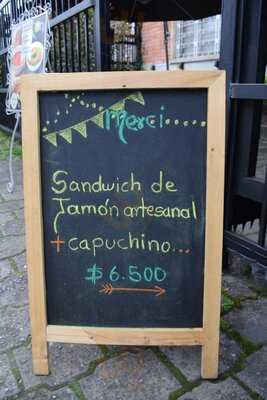 Merci........
Sandwich de
Jamón artesanal
+ capuchino...
$ 6.500